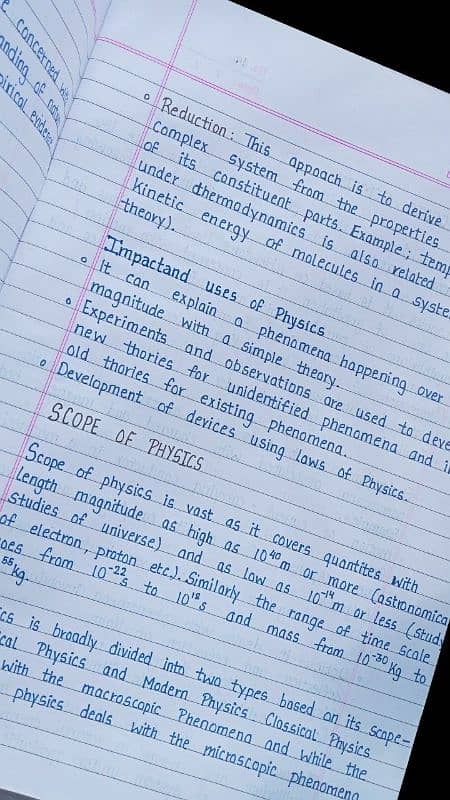 e concerned with
nding of natu
pirical eviden
Reduction: This appoach is to derive
Complex system from the properties
of its constituent parts. Example; temp
under dthermodynamics is also related
Kinetic energy of molecules in a syste
theory).
Impactand uses of Physics
It can explain a phenomena happening over
magnitude with a simple theory.
Experiments and observations are used to deve
new thories for unidentified phenomena and i
old thories for existing phenomena.
Development of devices using laws of Physics.
SCOPE OF PHYSICS
Scope of physics is vast as it covers quantites with
length magnitude as high as 10⁴⁰m or more (astionomica
studies of universe) and as low as 10⁻¹⁴m or less (study
of electron, proton etc.). Similarly the range of time scale
oes from 10⁻²²s to 10¹⁸s and mass from 10⁻³⁰kg to
⁵⁵kg.
ics is broadly divided into two types based on its scope-
cal Physics and Modern Physics. Classical Physics
with the macroscopic Phenomena and while the
physics deals with the microscopic phenomena